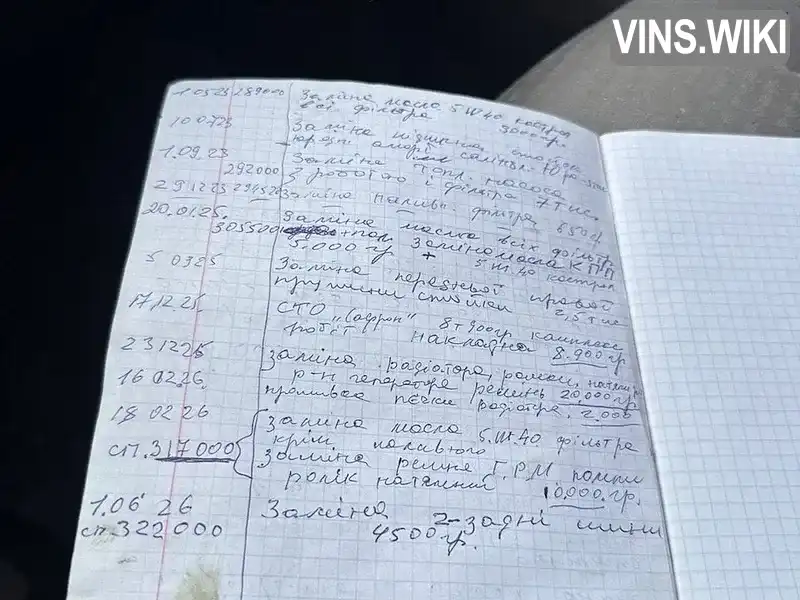 VINS.WIKI
1.05.23 289000 Заміна масла 5W40 костра
всі фільтра 3000 гр.
10.07.23 Заміна підшипн.
1.09.23 Заміна топл. насоса
292000 з роботою і фільтра 7 тис.
29.12.23 294520 Заміна палив. фільтра, 850 гр
20.01.25. Заміна масла всіх фільтр
305500 + заміна масла КПП
5.000 гр + 5W40 кострол
5 03 25 Заміна передньої правої
пружини стойки 2,5 тис
17.12.25. СТО „Сафрон" 8т 900 гр. комплекс
робіт накладна 8.900 гр.
23 12 25 Заміна радіатора, ремки,
16 02 26, р-н генератора ремінь 20.000 гр.
промивка печки радіатора. 2.000
18 02 26 Заміна масла 5W40 фільтра
крім паливного
сп. 317000 Заміна ремня Г.Р.М помпи
ролік натяжний 10.000. гр.
1.06 26 Заміна 2-задні шини
сп. 322000 4500 гр.